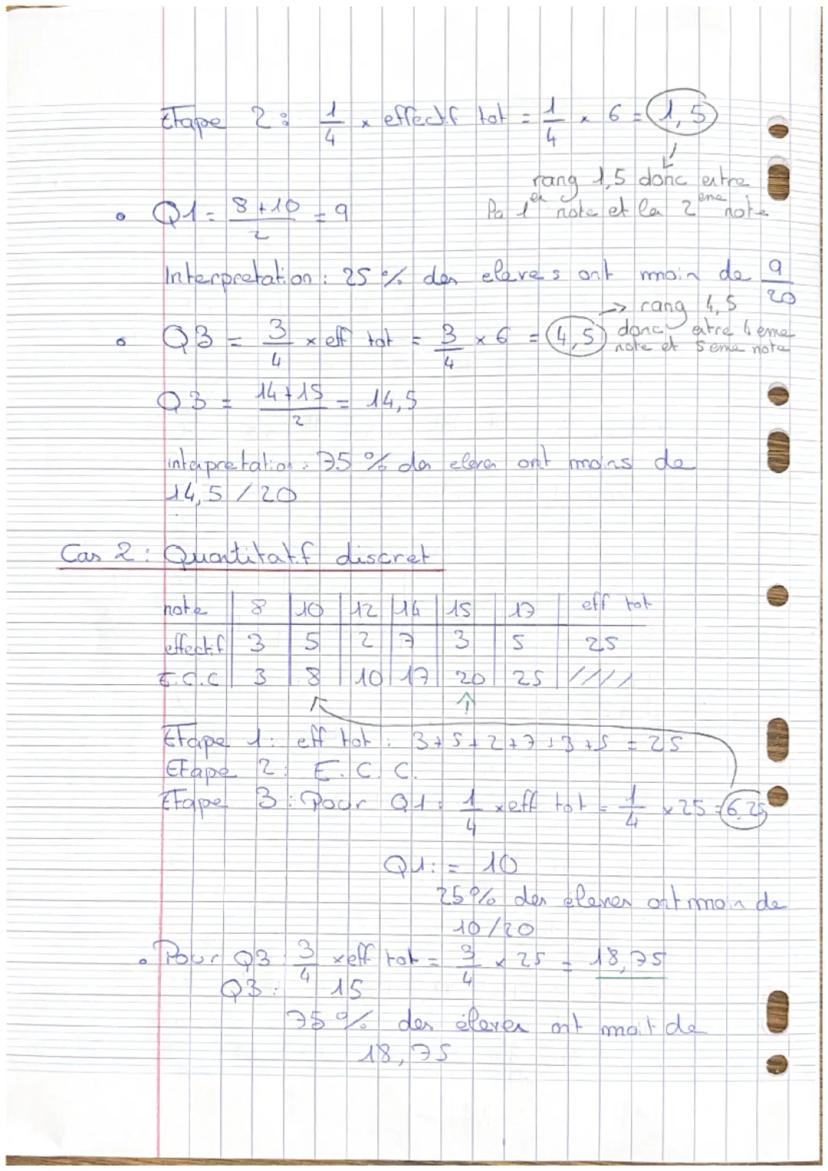 Etape 2 : 1/4 × effectif tot = 1/4 × 6 = 1,5
rang 1,5 donc entre
la 1er note et la 2eme note
• Q1 = (8+10)/2 = 9
Interpretation : 25 % des eleves ont moin de 9/20
→ rang 4,5
donc entre 4 eme
note et 5 eme note
• Q3 = 3/4 × eff tot = 3/4 × 6 = 4,5
Q3 = (14+15)/2 = 14,5
interpretation : 75 % des eleves ont moins de
14,5 / 20
Cas 2 : Quantitatif discret
note 8 10 12 14 15 17 eff tot
effectif 3 5 2 7 3 5 25
E.C.C 3 8 10 17 20 25 ////
Etape 1 : eff tot : 3+5+2+7+3+5 = 25
Etape 2 : E.C.C.
Etape 3 : Pour Q1 : 1/4 × eff tot = 1/4 × 25 = 6,25
Q1 : = 10
25% des éleves ont moin de
10/20
• Pour Q3 : 3/4 × eff tot = 3/4 × 25 = 18,75
Q3 : 15
75 % des éleves ont moit de
18,75